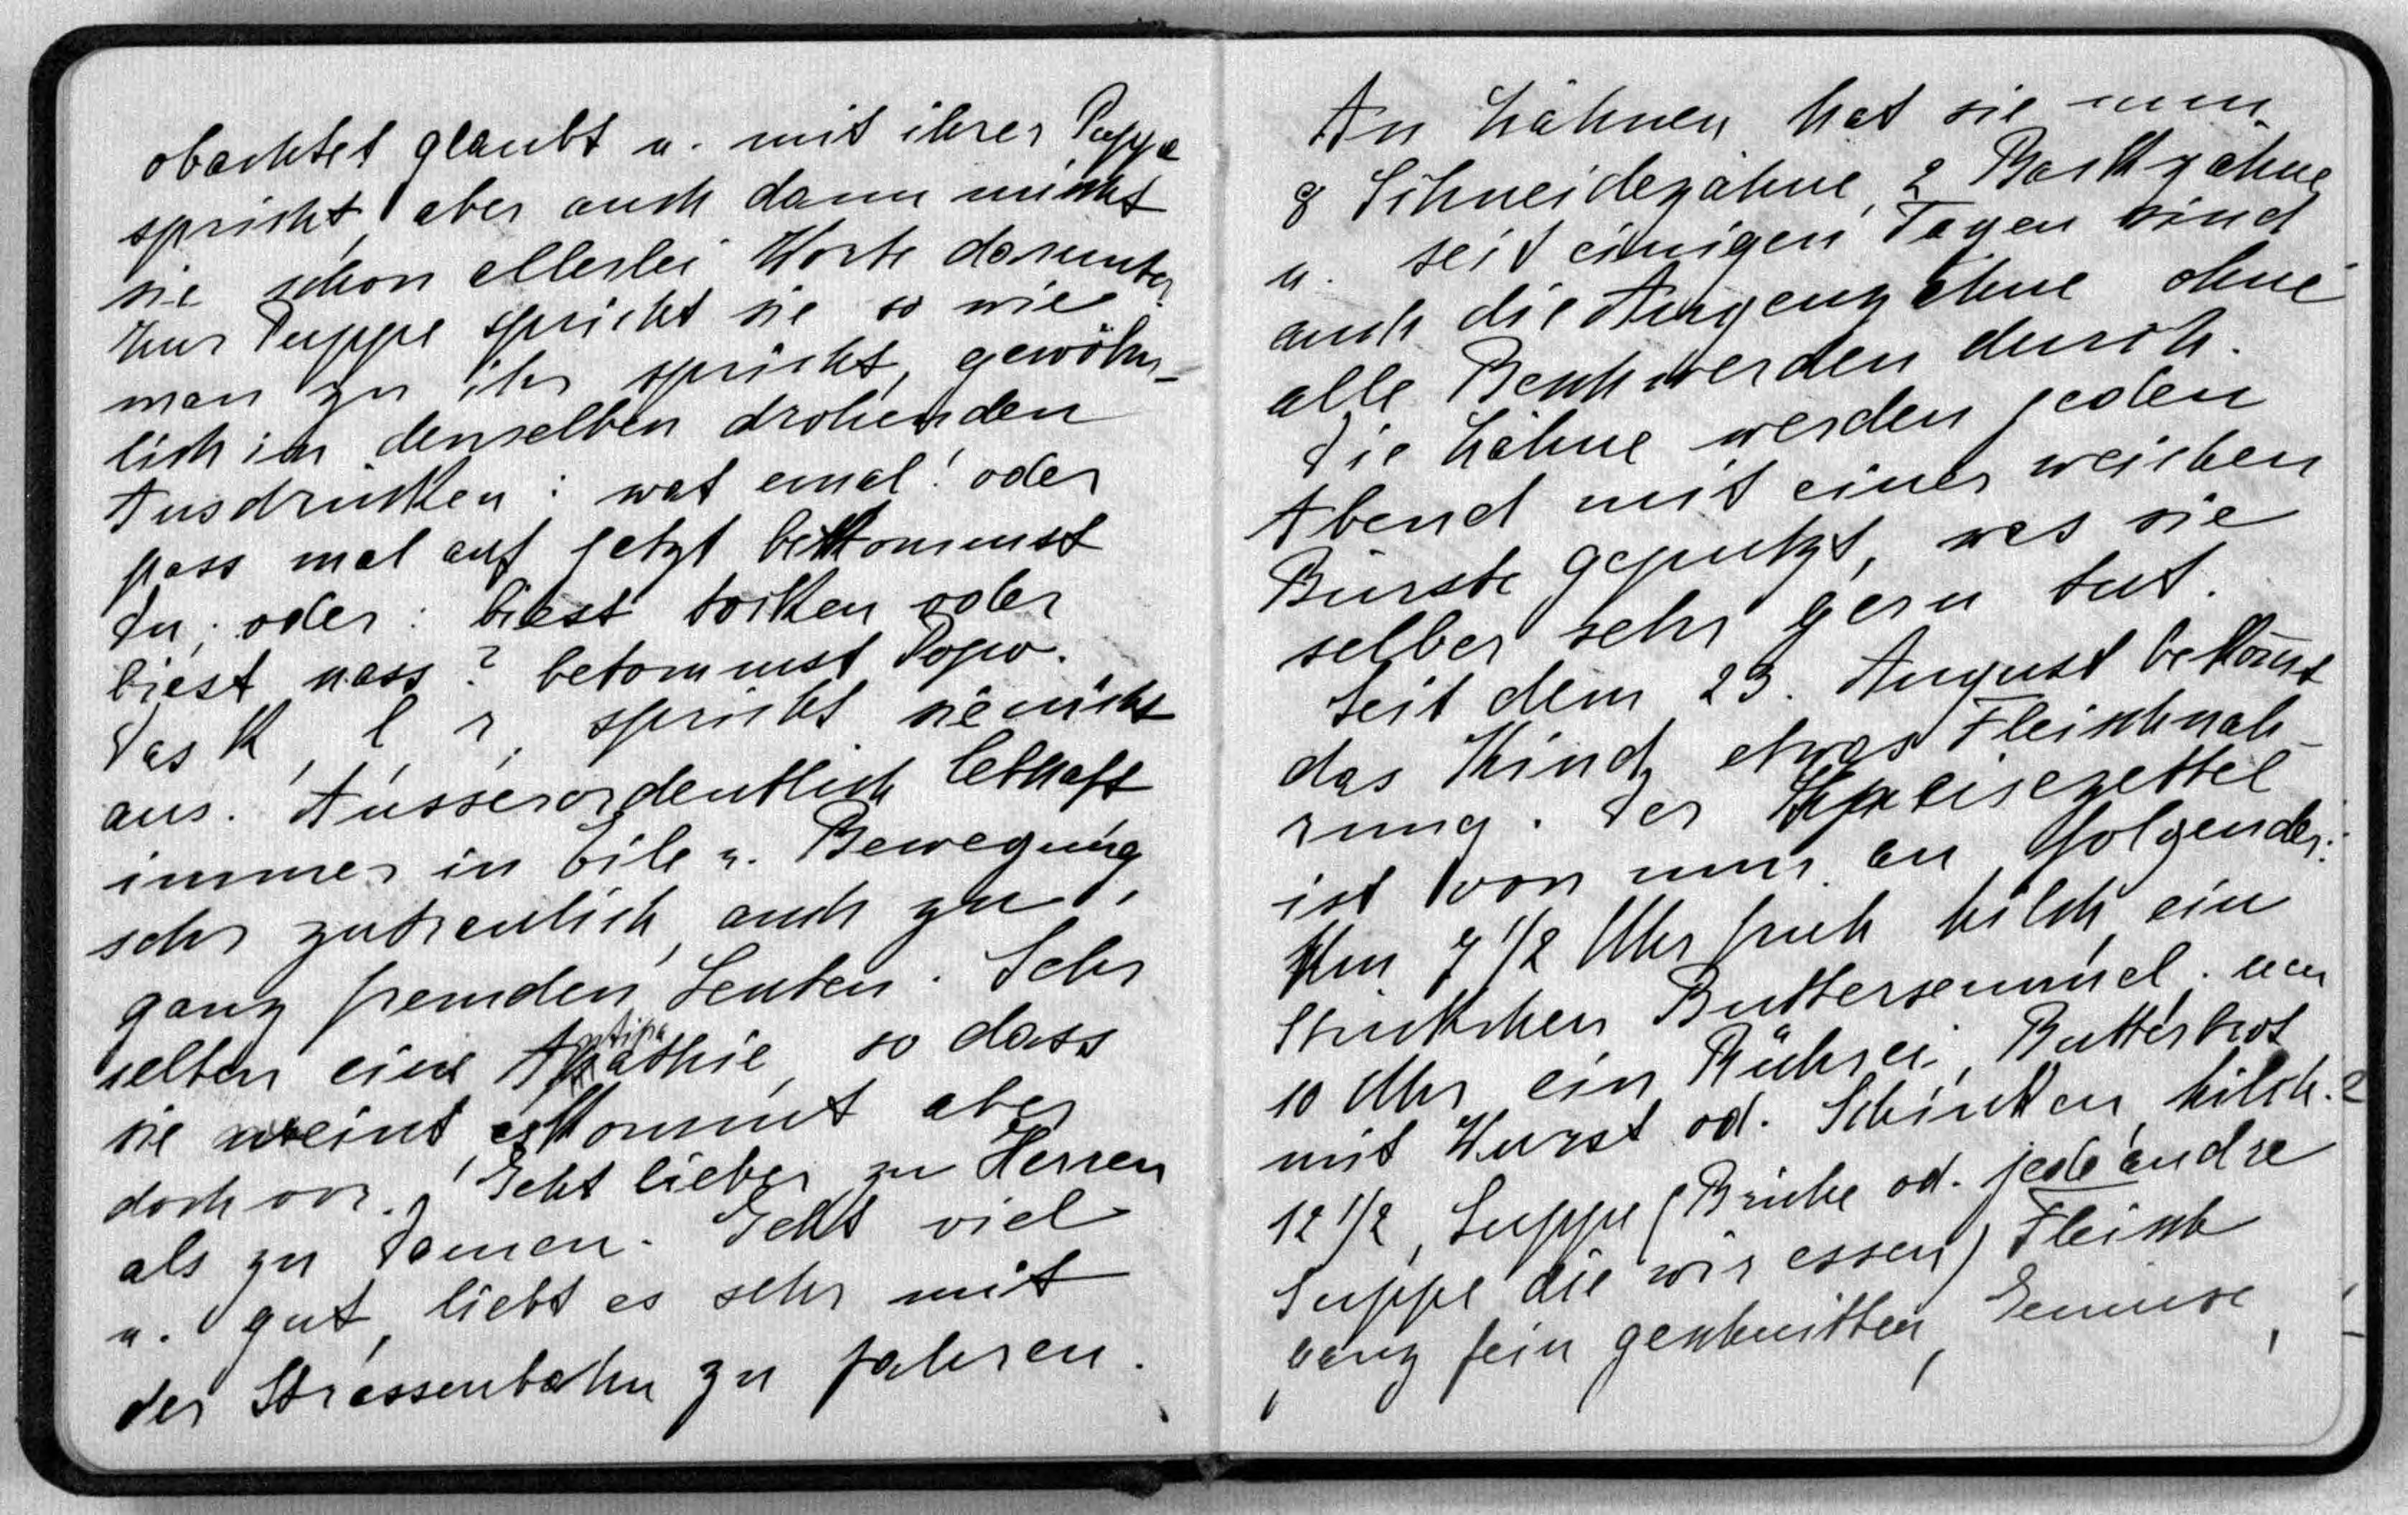 obachtet glaubt u. mit ihrer Puppe
spricht, aber auch dann mischt
sie schon allerlei Worte darunter.
Zur Puppe spricht sie so wie
man zu ihr spricht, gewöhn-
lich in denselben drohenden
Ausdrücken: wat emal! oder
pass mal auf jetzt bekommst
Du; oder: biest tocken oder
biest nass? betommst Popo.
Das K, l, r, spricht sie nicht
aus. Ausserordentlich lebhaft
immer in Eile u. Bewegung,
sehr zutraulich, auch zu
ganz fremden Leuten. Sehr
selten eine Antipathie, so dass
sie weint, es kommt aber
doch vor. Geht lieber zu Herren
als zu Damen. Geht viel
u. gut, liebt es sehr mit
der Strassenbahn zu fahren.
An Zähnen hat sie nun
8 Schneidezähne, 2 Backzähne
u. seit einigen Tagen sind
auch die Augenzähne ohne
alle Beschwerden durch.
Die Zähne werden jeden
Abend mit einer weichen
Bürste geputzt, was sie
selber sehr gern tut.
Seit dem 23. August bekom̄t
das Kind etwas Fleischnah-
rung. Der Speisezettel
ist von nun an folgender:
Um 7 1/2 Uhr früh Milch ein
Stückchen Buttersemmel. um
10 Uhr ein Rührei, Butterbrot
mit Wurst od. Schinken, Milch.
12 1/2, Suppe (Brühe od. jede andre
Suppe die wir essen) Fleisch
ganz fein geschnitten, Gemüse,